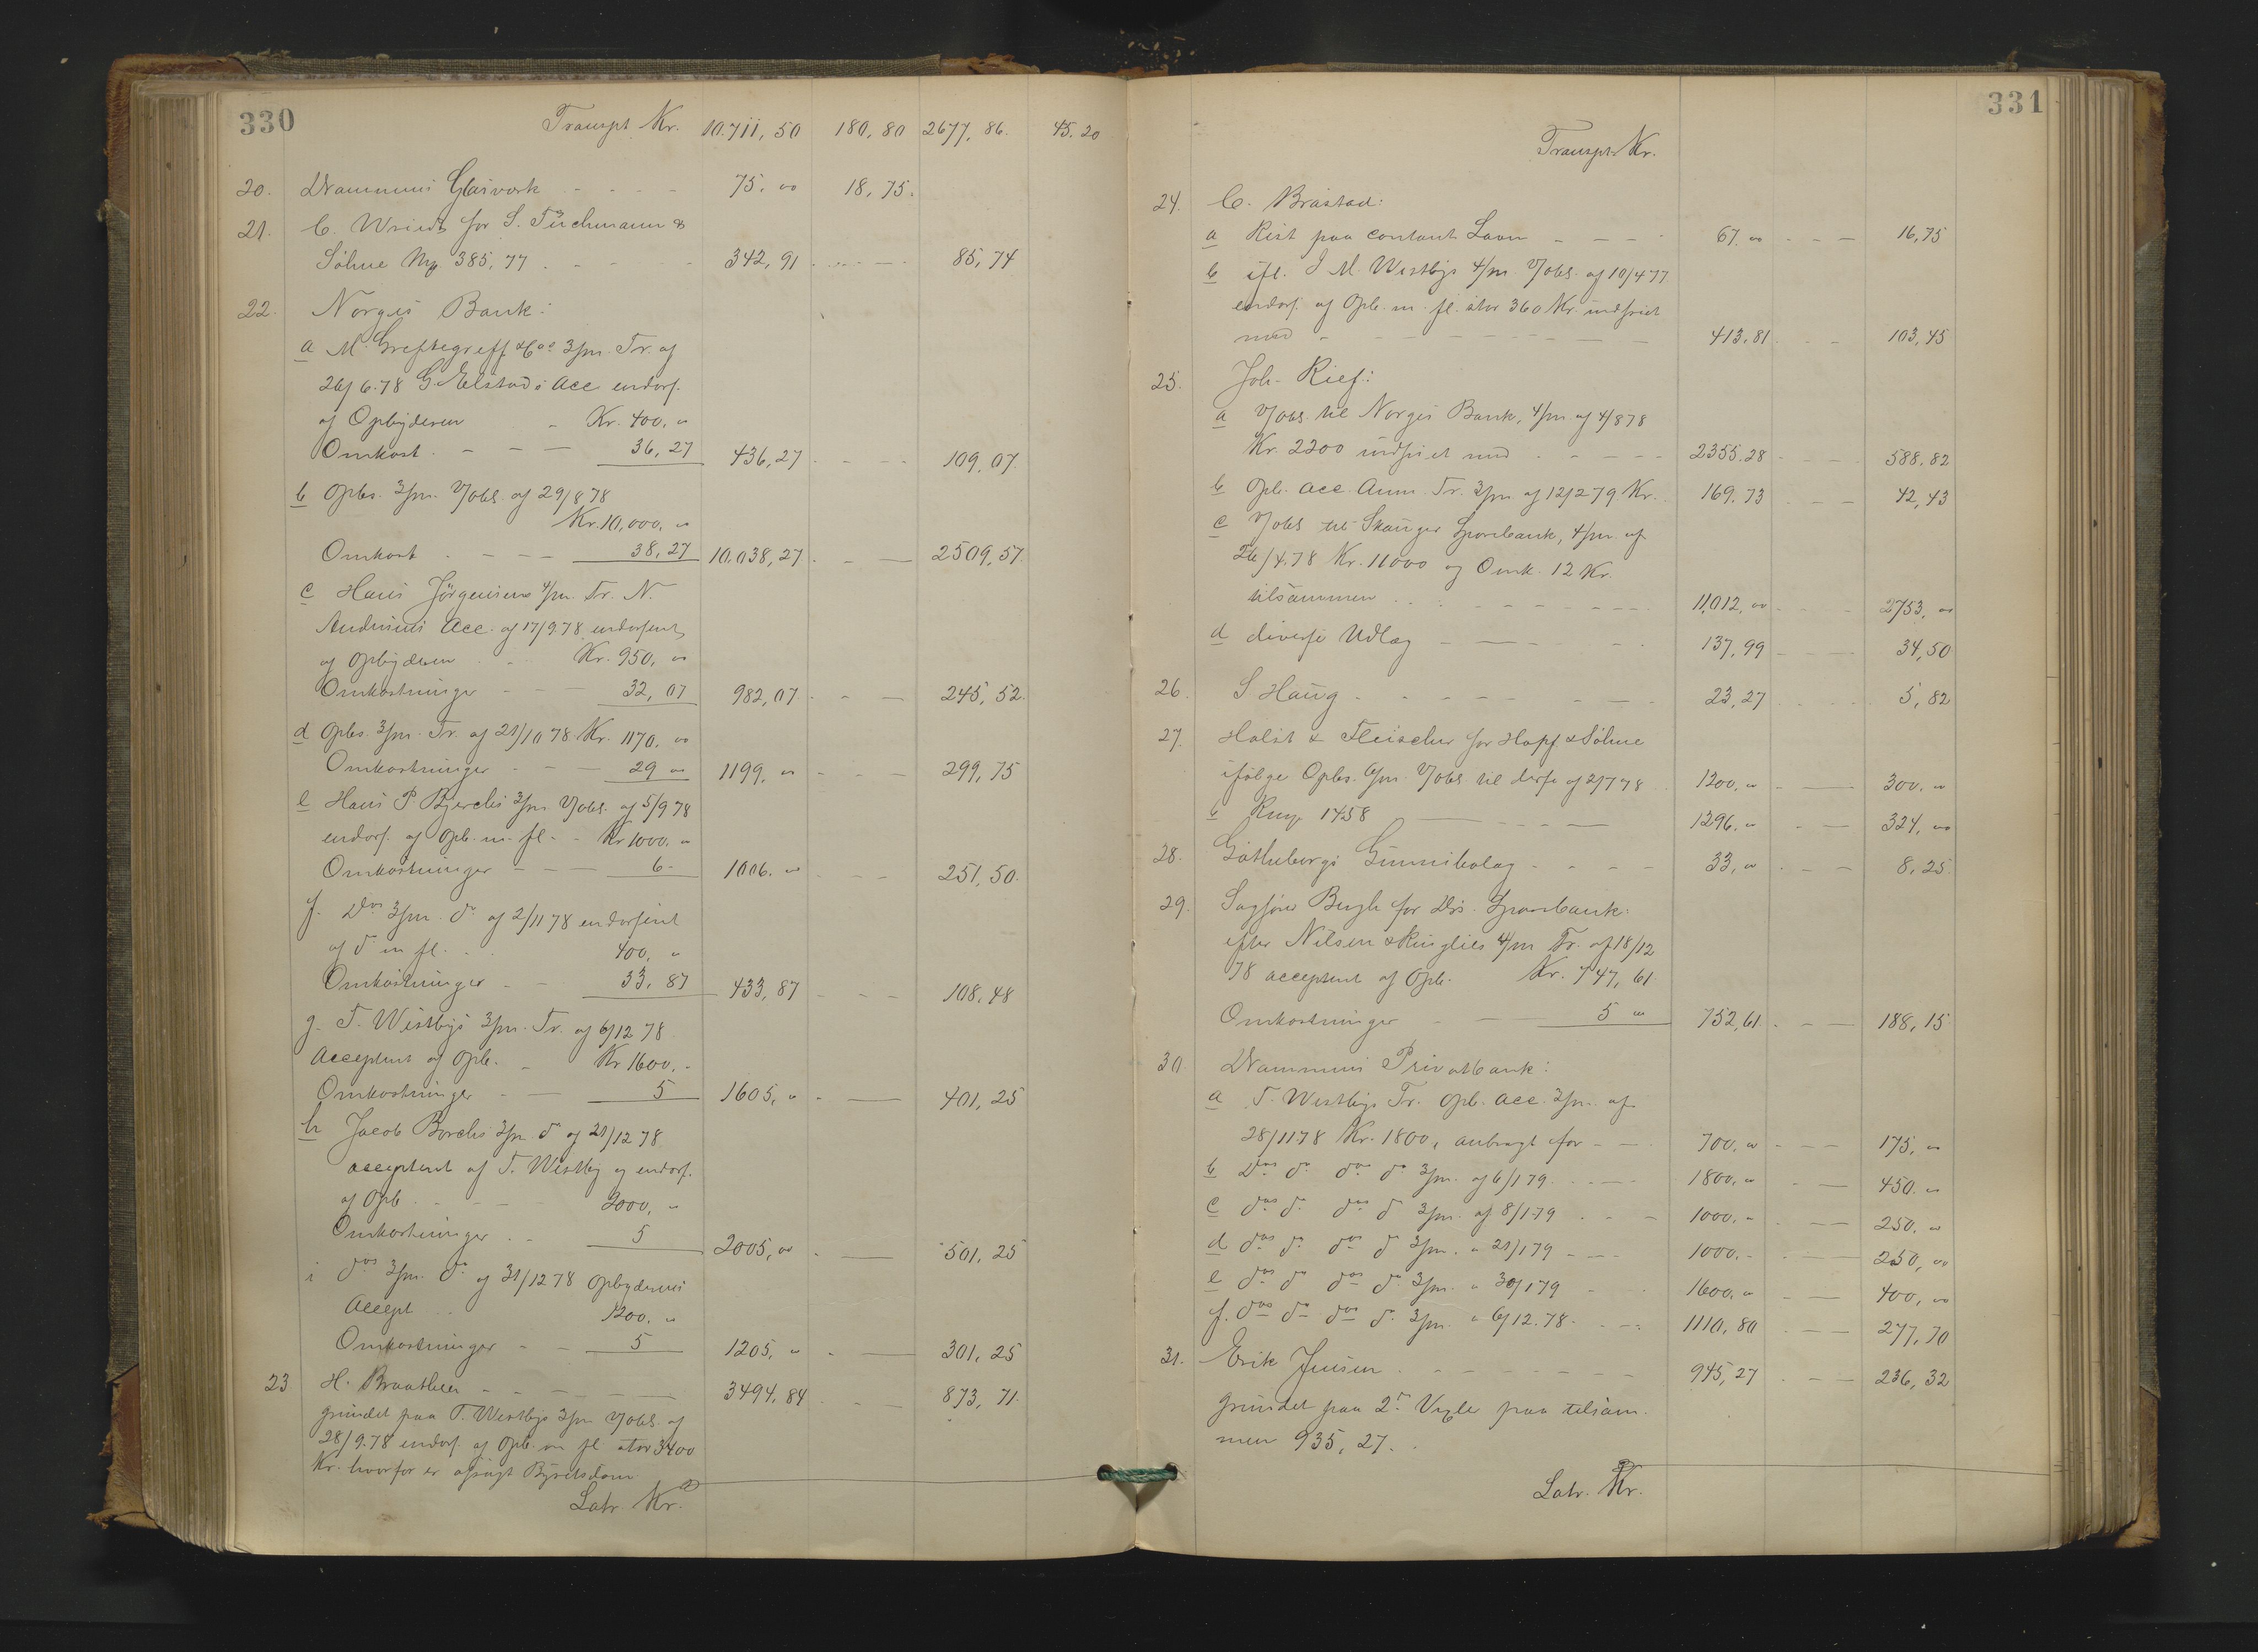 330
Transpt Kr. 10.711,50 180,80 2677,86. 45.20
20. Drammens Glasværk - - - - 75. " 18,75.
21. C. Wriedt for S. Tüchmann &
Söhne Mk 385,77 . - - - - 342,91 - - - 85,74
22. Norges Bank:
a M. Greftegreff & Co 3/m. Tr. af
26/6.78 G. Elstads Acc endors.
af Opbyderen - Kr. 400, "
Omkost. - - - 36,27 436,27 - - - 109.07.
b Opbs. 3/m. Vobl. af 29/8 78
Kr. 10,000, "
Omkost . - - - 38,27 10.038,27. - - 2509,57.
c Hans Jörgensens 4/m. Tr. N.
Andersens Acc. af 17/9.78 endorseret
af Opbyderen . - Kr. 950, "
Omkostninger - - - 32,07 982,07 - - - 245,52.
d Opbs. 3/m. Tr. af 21/10 78 Kr. 1170. "
Omkostninger - - - 29 " 1199. " - - - 299,75
e Hans P. Bjerchs 3/m Vobl. af 5/9 78
endors. af Opb. m. fl. - - Kr 1000. "
Omkostninger - - - 6 - 1006. " - - - 251,50.
f. Dos 3/m. do af 2/11 78 endorseret
af do m fl. . . 400, "
Omkostninger - - 33,87 433,87 - - - 108.48
g. T. Westbys 3/m. Tr. af 6/12 78
Acceptert af Opb. - Kr 1600. -
Omkostninger - - 5 1605, " - - 401,25
h Jacob Borchs 3/m do af 21/12 78
acceptert af T. Westby og endors.
af Opb. - - - 2000, "
Omkostninger . . 5 2005, " - - 501,25
i dos 3/m. do af 31/12 78 Opbyderens
Accept . . 1200. "
Omkostninger - - 5 1205, " - - 301,25
23 H. Braathen - - - - - 3494,84 - - - 873,71.
grundet paa T. Westbys 3/m Vobl. af
28/9.78 endors. af Opb. m fl stor 3400
Kr. hvorfor er afsagt Byretsdom
Latr. Kr.
331
Transpt Kr.
24. C. Brastad:
a Rest paa contant Laan - - - - 67. " - - - 16,75
b ifl. J M. Westbys 4/m. Vobl. af 10/4 77
endors. af Opb. m. fl. stor 360 Kr. indfriet
med - - - - - - - - 413.81 - - - 103,45
25. Joh. Rief:
a Vobl. til Norges Bank, 4/m af 4/8 78
Kr. 2200 indfriet med - - - - 2355.28 - - - 588.82
b Opb. Acc. Tr. 3/m af 12/2 79 Kr. 169.73 - - - 42,43
c Vobl til Skauger Sparebank, 4/m af
26/4.78 Kr. 11000 og Omk. 12 Kr.
tilsammen . . - - - - - - 11,012, " - - - 2753, "
d diverse Udlæg - - - - - 137,99 - - - 34,50
26. S Haug - - - - - - - - 23,27 - - - 5,82
27. Holst & Fleischer for Hopf & Söhne
ifølge Opbs. 6/m. Vobl. til disse af 2/7 78 1200, " - - 300. "
b 1458 - - - - - 1296. " - - 324, "
28. Götheborgs - - - - 33, " - - - 8,25
29. Sagfører Bugle for Drs. Sparebank:
efter Nilsen & 4/m Tr. af 18/12
78 acceptert af Opb. Kr. 747,61
Omkostninger - - - 5 " 752,61. - - - 188,15
30. Drammens Privatbank:
a T. Westbys Tr. Opb. Acc. 3/m. af
28/11 78 Kr. 1800, anbragt for - - 700. " - - - 175, "
b Dos do dos do 3/m. af 6/1 79 - - - - 1800. " - - 450. "
c dos do dos do 3/m. af 8/1 79 - - - 1000. " - - - 250. "
d dos do dos do 3/m. " 21/1 79 - - - 1000. - - - - 250, "
e dos do dos do 3/m. " 30/1 79 - - 1600. " - - 400, "
f. dos do dos do 3/m. " 6/12.78. - - - 1110,80 - - - 277,70
31. Erik Jensen . - - - - - - 945,27 - - - 236,32
grundet paa 2de Vexler paa tilsam.
men 935,27. .
Latr. Kr.